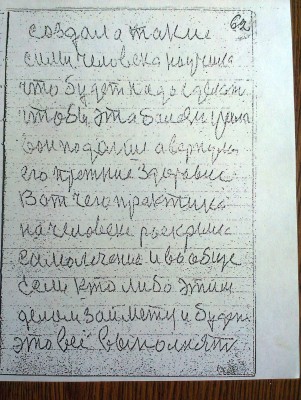 62
создала такие
сили человека научила
что будет надо сделат
чтоби эта болезн ушла
вон подалше а вернула
его прежние здоровие
Вот чего практика
на человеке раскрила
самолечение и вообще
если кто либо этим
делом займется и будет
это всё выполнят